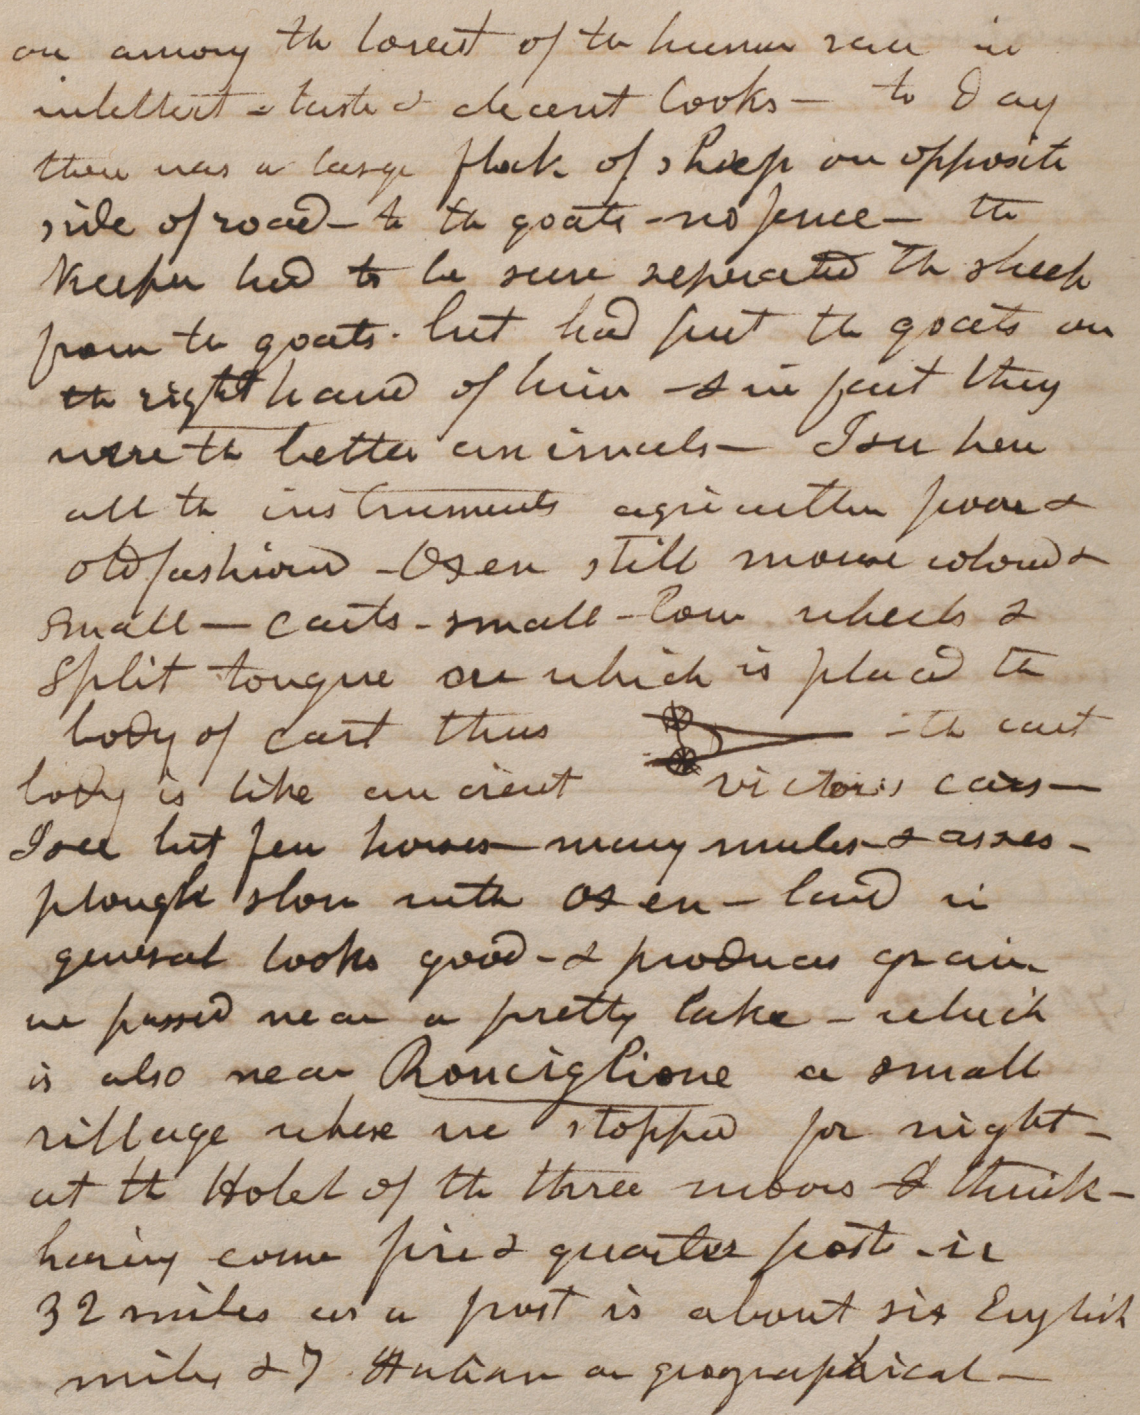 are among the lowest of the human race in
intellect - taste & decent looks - to Day
there was a large flock of sheep on opposite
side of road - to the goats - no fence - the
Keeper had to be sure seperated the sheep
from the goats - but had put the goats on
the right hand of him - & in fact they
were the better animals - I see here
all the instruments agriculture poor &
old fashioned - Oxen still mouse coloured &
small - carts - small - low wheels &
split tongue on which is placed the
body of cart thus - the cart
body is like ancient victors cars -
I see but few horses - many mules & asses -
plough slow with oxen - land in
general looks good - & produces grain
we passed near a pretty lake - which
is also near Ronciglione a small
village where we stopped for night -
at the Hotel of the three moors I think -
having come five & quarter posts - ie
32 miles as a post is about six English
miles & 7 Italian or geographical -